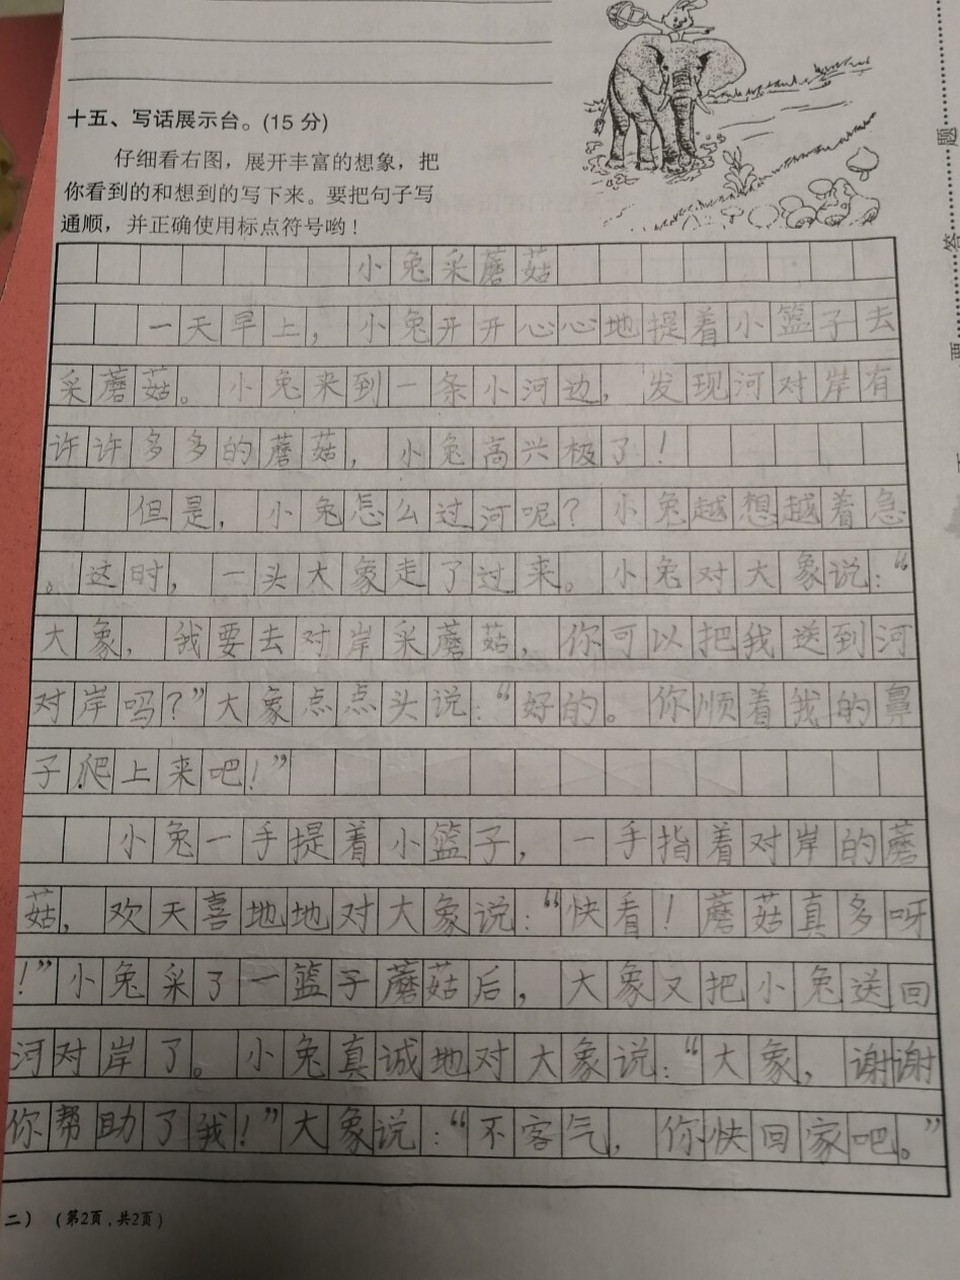 十五、写话展示台。(15 分)
仔细看右图，展开丰富的想象，把
你看到的和想到的写下来。要把句子写
通顺，并正确使用标点符号哟！
小兔采蘑菇
一天早上，小兔开开心心地提着小篮子去
采蘑菇。小兔来到一条小河边，发现河对岸有
许许多多的蘑菇，小兔高兴极了！
但是，小兔怎么过河呢？小兔越想越着急
。这时，一头大象走了过来。小兔对大象说：“
大象，我要去对岸采蘑菇，你可以把我送到河
对岸吗？”大象点点头说：“好的。你顺着我的鼻
子爬上来吧！”
小兔一手提着小篮子，一手指着对岸的蘑
菇，欢天喜地地对大象说：“快看！蘑菇真多呀
！”小兔采了一篮子蘑菇后，大象又把小兔送回
河对岸了。小兔真诚地对大象说：“大象，谢谢
你帮助了我！”大象说：“不客气，你快回家吧。”
二） (第2页，共2页)
题
答